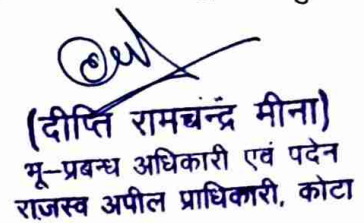 (दीप्ति रामचंन्द्र मीना)
भू-प्रबन्ध अधिकारी एवं पदेन
राजस्व अपील प्राधिकारी, कोटा